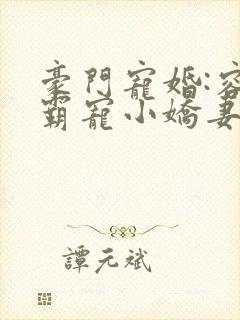 豪門寵婚:容
霸寵小嬌妻
譚元斌